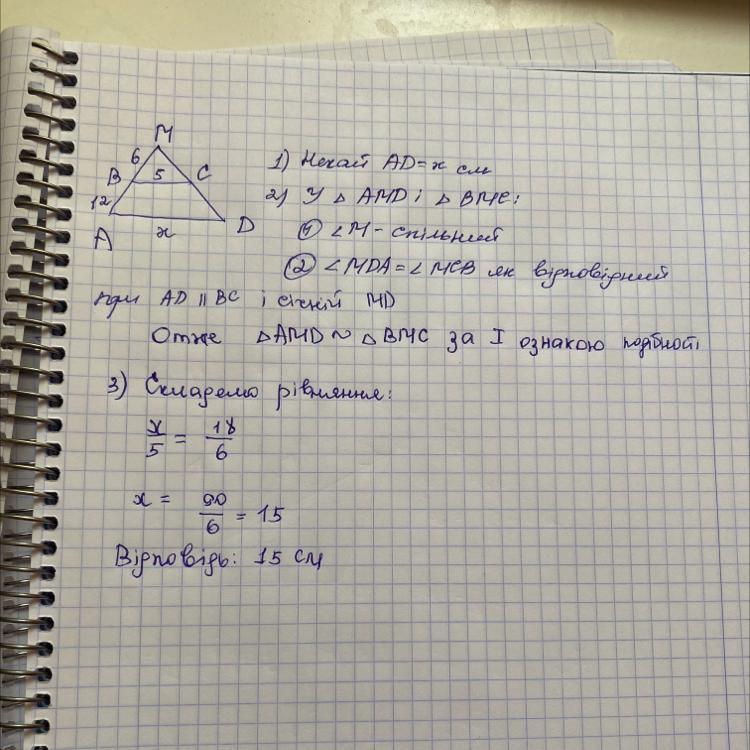 M
6
B 5 C
12
A x D
1) Нехай AD = x см
2) У △ AMD і △ BMC:
① ∠M - спільний
② ∠MDA = ∠MCB як відповідний
при AD || BC і січній MD
Отже △AMD ~ △BMC за I ознакою подібності
3) Складемо рівняння:
x/5 = 18/6
x = 90/6 = 15
Відповідь: 15 см